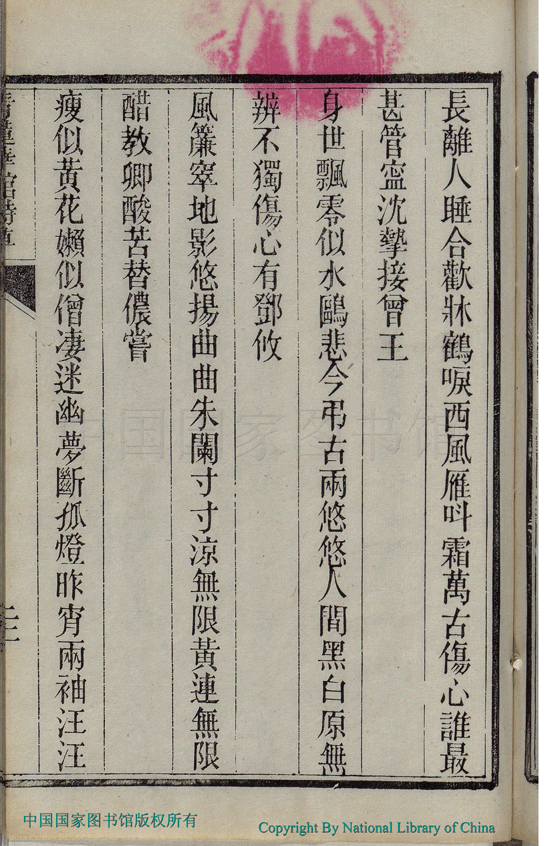 長離人睡合歡牀鶴唳西風雁呌霜萬古傷心誰最
甚管寍沈摯接曾王
身世飄零似水鷗悲今弔古兩悠悠人間黑白原無
辨不獨傷心有鄧攸
風簾窣地影悠揚曲曲朱闌寸寸涼無限黃連無限
醋教卿酸苦替儂嘗
瘦似黃花嬾似僧淒迷幽夢斷孤燈昨宵兩袖汪汪
中国国家图书馆
中国国家图书馆版权所有
Copyright By National Library of China